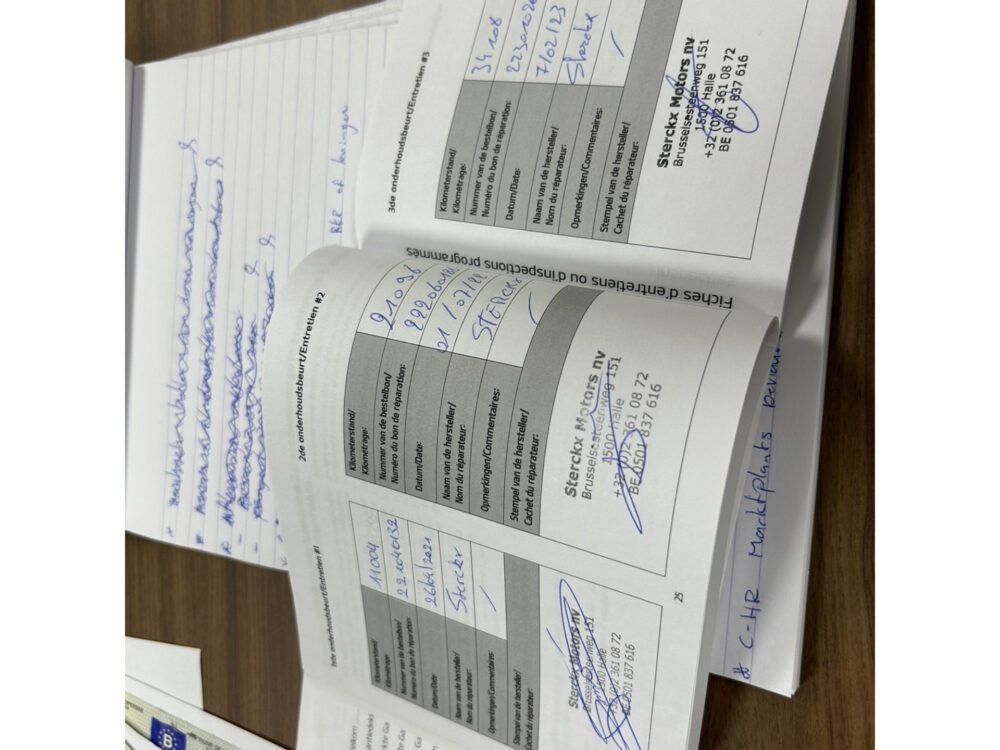 1ste onderhoudsbeurt/Entretien #1
Kilometerstand/
Kilométrage:
11004
Nummer van de bestelbon/
Numéro du bon de réparation:
221040132
Datum/Date:
26/04/2021
Naam van de hersteller/
Nom du réparateur:
Sterckx
Opmerkingen/Commentaires:
/
Stempel van de hersteller/
Cachet du réparateur:
Sterckx Motors nv
Brusselsesteenweg 151
1500 Halle
+32 (0)2 361 08 72
BE 0501 837 616
2de onderhoudsbeurt/Entretien #2
Kilometerstand/
Kilométrage:
21096
Nummer van de bestelbon/
Numéro du bon de réparation:
Datum/Date:
21/07/22
Naam van de hersteller/
Nom du réparateur:
STERCKX
Opmerkingen/Commentaires:
/
Stempel van de hersteller/
Cachet du réparateur:
Sterckx Motors nv
Brusselsesteenweg 151
1500 Halle
+32 (0)2 361 08 72
BE 0501 837 616
25
Fiches d'entretiens ou d'inspections programmés
3de onderhoudsbeurt/Entretien #3
Kilometerstand/
Kilométrage:
34108
Nummer van de bestelbon/
Numéro du bon de réparation:
Datum/Date:
7/02/23
Naam van de hersteller/
Nom du réparateur:
Sterckx
Opmerkingen/Commentaires:
/
Stempel van de hersteller/
Cachet du réparateur:
Sterckx Motors nv
Brusselsesteenweg 151
1500 Halle
+32 (0)2 361 08 72
BE 0501 837 616
of
# C-HR Marktplants